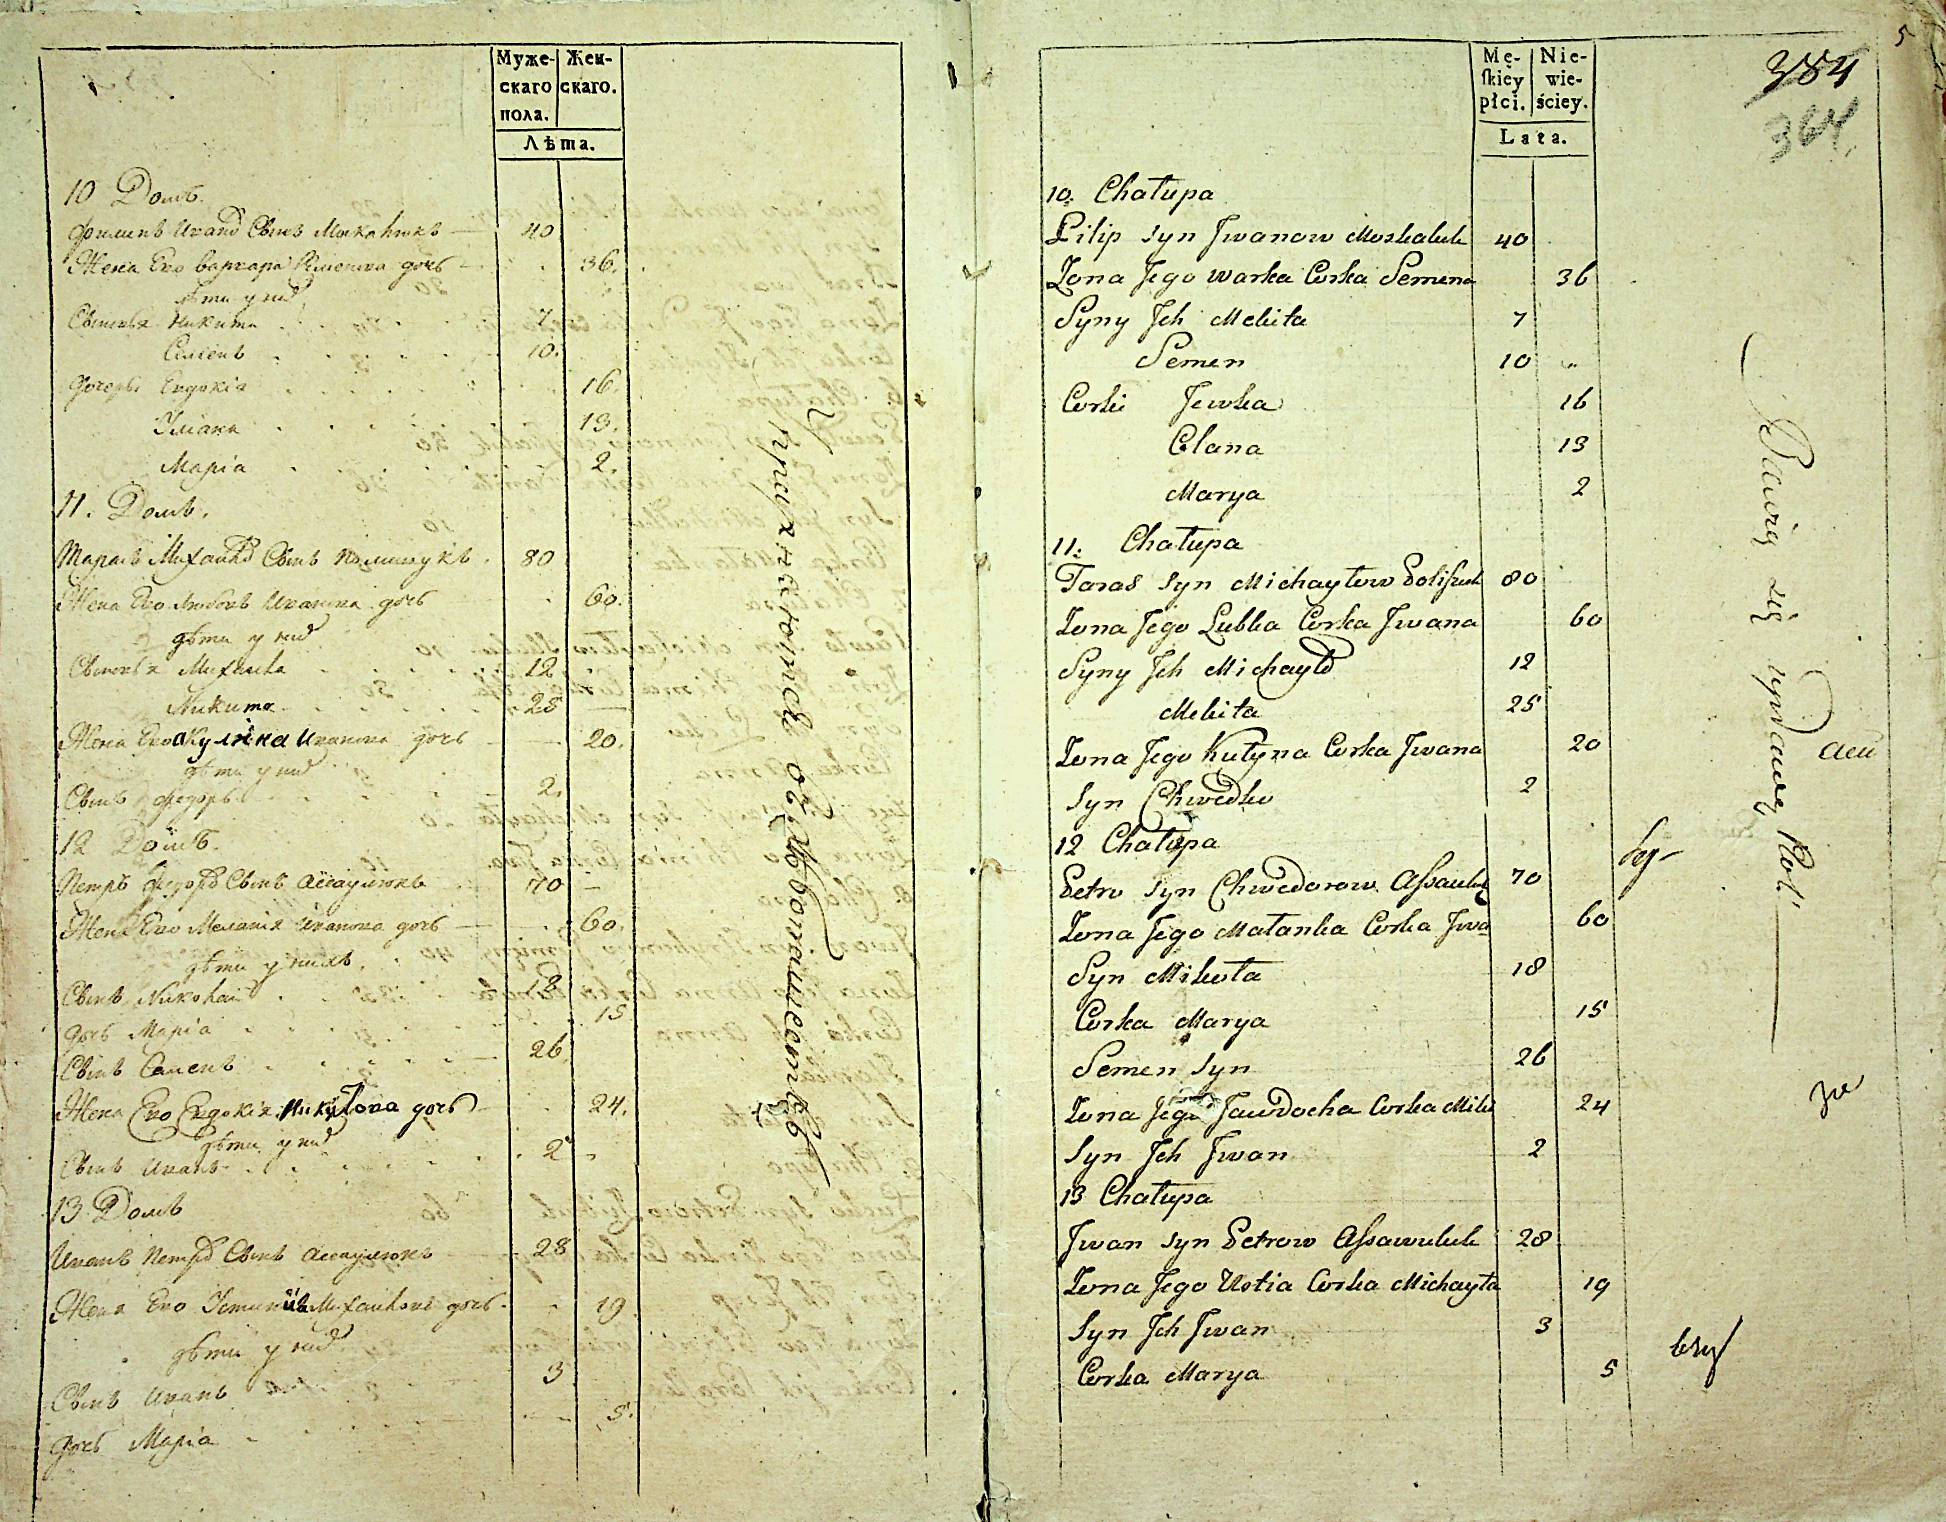 Муже-
скаго
пола.
Жен-
скаго.
Лѣта.
10 Домъ.
Филипъ Иванов Сынъ 40
Жена Его варвара Семенова дочь 36.
дѣти у них
Сыновья Никита 7
Семенъ 10.
дочери Евдокія 16.
Уліана 13.
Марія 2.
11. Домъ.
Тарасъ Михайлов Сынъ Полищукъ 80
Жена Его Любовь Иванова дочь 60.
дѣти у них
Сыновья Михайла 12
Никита 25
Жена Его акулина Иванова дочь 20.
дѣти у них
Сынъ Федоръ 2.
12 Домъ.
Петръ Федоров Сынъ Ассаулюкъ 70
Жена Его Меланія Иванова дочь 60.
дѣти у нихъ.
Сынъ Николай 18
дочь Марія 15
Сынъ Семенъ 26
Жена Его Евдокія Никитова дочь 24.
дѣти у них
Сынъ Иванъ 2
13 Домъ
Иванъ Петров Сынъ Ассаулюкъ 28
Жена Его Устинія Михайлова дочь 19
дѣти у них
Сынъ Иванъ 3
дочь Марія 5.
5
384
364
Mę-
skiey
płci.
Nie-
wie-
ściey.
Lata.
10. Chałupa
Filip Syn Jwanow Moskaluk 40
Zona Jego Warka Corka Semena 36
Syny Jch Mekita 7
Semen 10
Corki Jewka 16
Olana 13
Marya 2
11: Chałupa
Taras Syn Michayłow Poliszuk 80
Zona Jego Lubka Corka Jwana 60
Syny Jch Michayło 12
Mekita 25
Zona Jego Kulyna Corka Jwana 20
Syn Chwedko 2
12 Chałupa
Petro Syn Chwedorow Assauluk 70
Zona Jego Małanka Corka Jwa 60
Syn Mikoła 18
Corka Marya 15
Semen Syn 26
Zona Jego Jawdocha Corka Miki 24
Syn Jch Jwan 2
13 Chałupa
Jwan Syn Petrow Assawuluk 28
Zona Jego Ustia Corka Michayła 19
Syn Jch Jwan 3
Corka Marya 5
Bawią się uprawą Roli